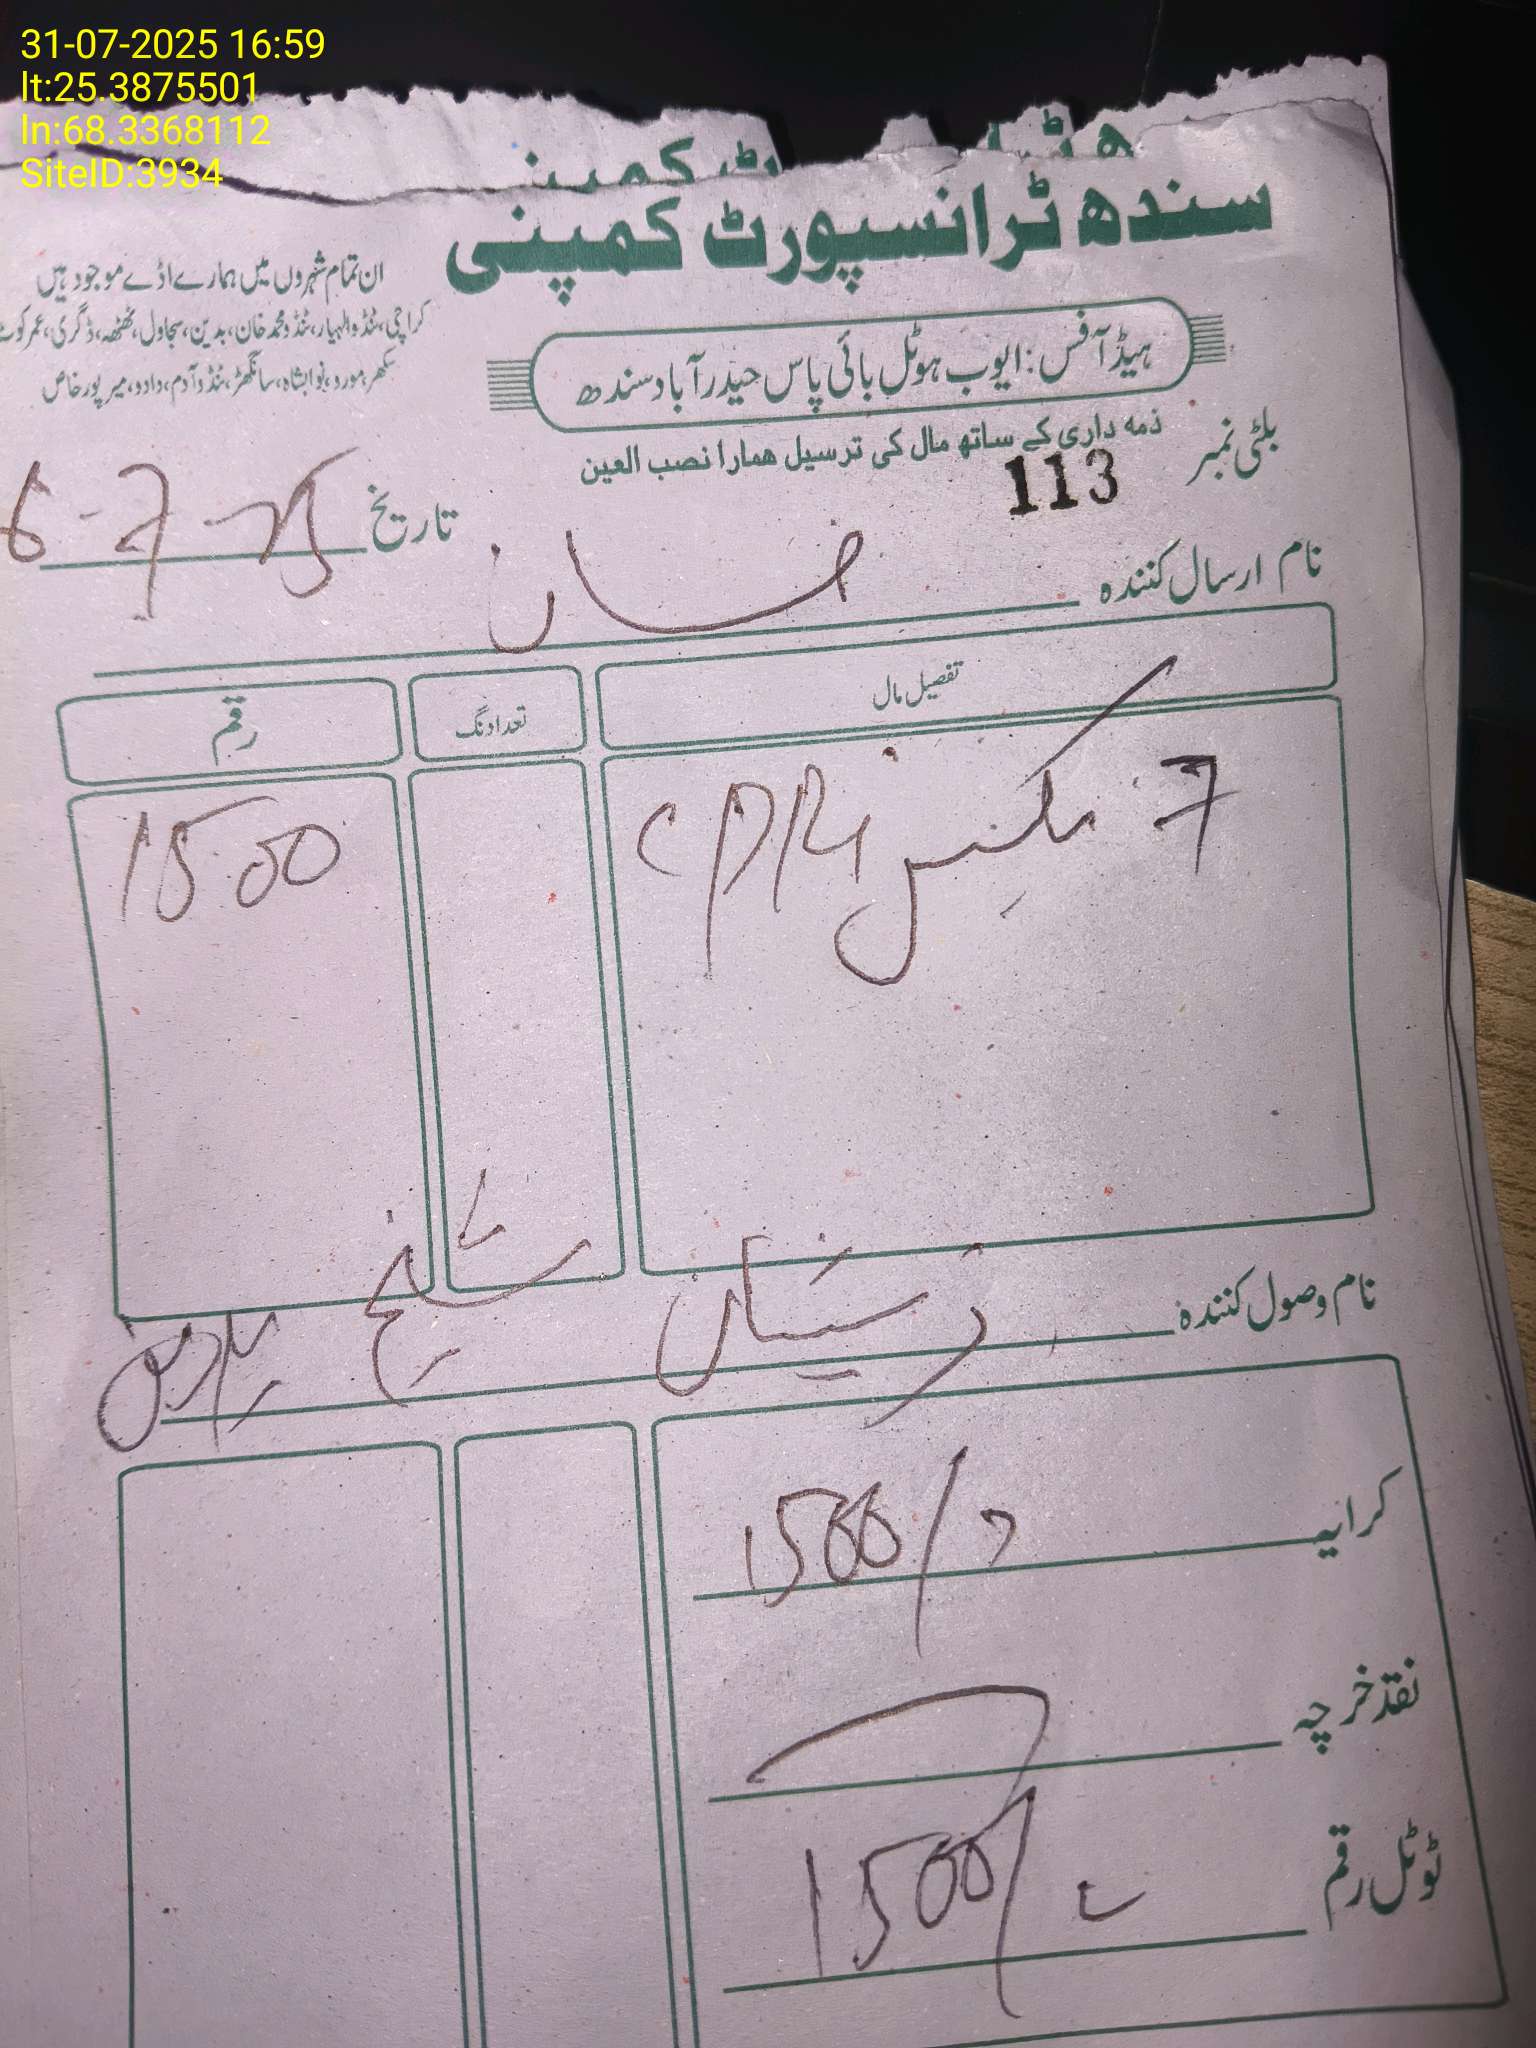 31-07-2025 16:59
lt:25.3875501
ln:68.3368112
SiteID:3934
کمپنی
سندھ ٹرانسپورٹ کمپنی
ان تمام شہروں میں ہمارے اڈے موجود ہیں
کراچی، ٹنڈوالہیار، ٹنڈو محمد خان، بدین، سجاول، ٹھٹھہ، ڈگری، عمرکوٹ
سکھر، مورو، نوابشاہ، سانگھڑ، ٹنڈوآدم، دادو، میرپورخاص
ہیڈ آفس: ایوب ہوٹل بائی پاس حیدرآباد سندھ
ذمہ داری کے ساتھ مال کی ترسیل ھمارا نصب العین
بلٹی نمبر 113
تاریخ 6-7-25
نام ارسال کنندہ
تفصیل مال تعداد نگ رقم
7 CPRI 1500
نام وصول کنندہ شیخ
کرایہ 1500/
نقد خرچہ
ٹوٹل رقم 1500/